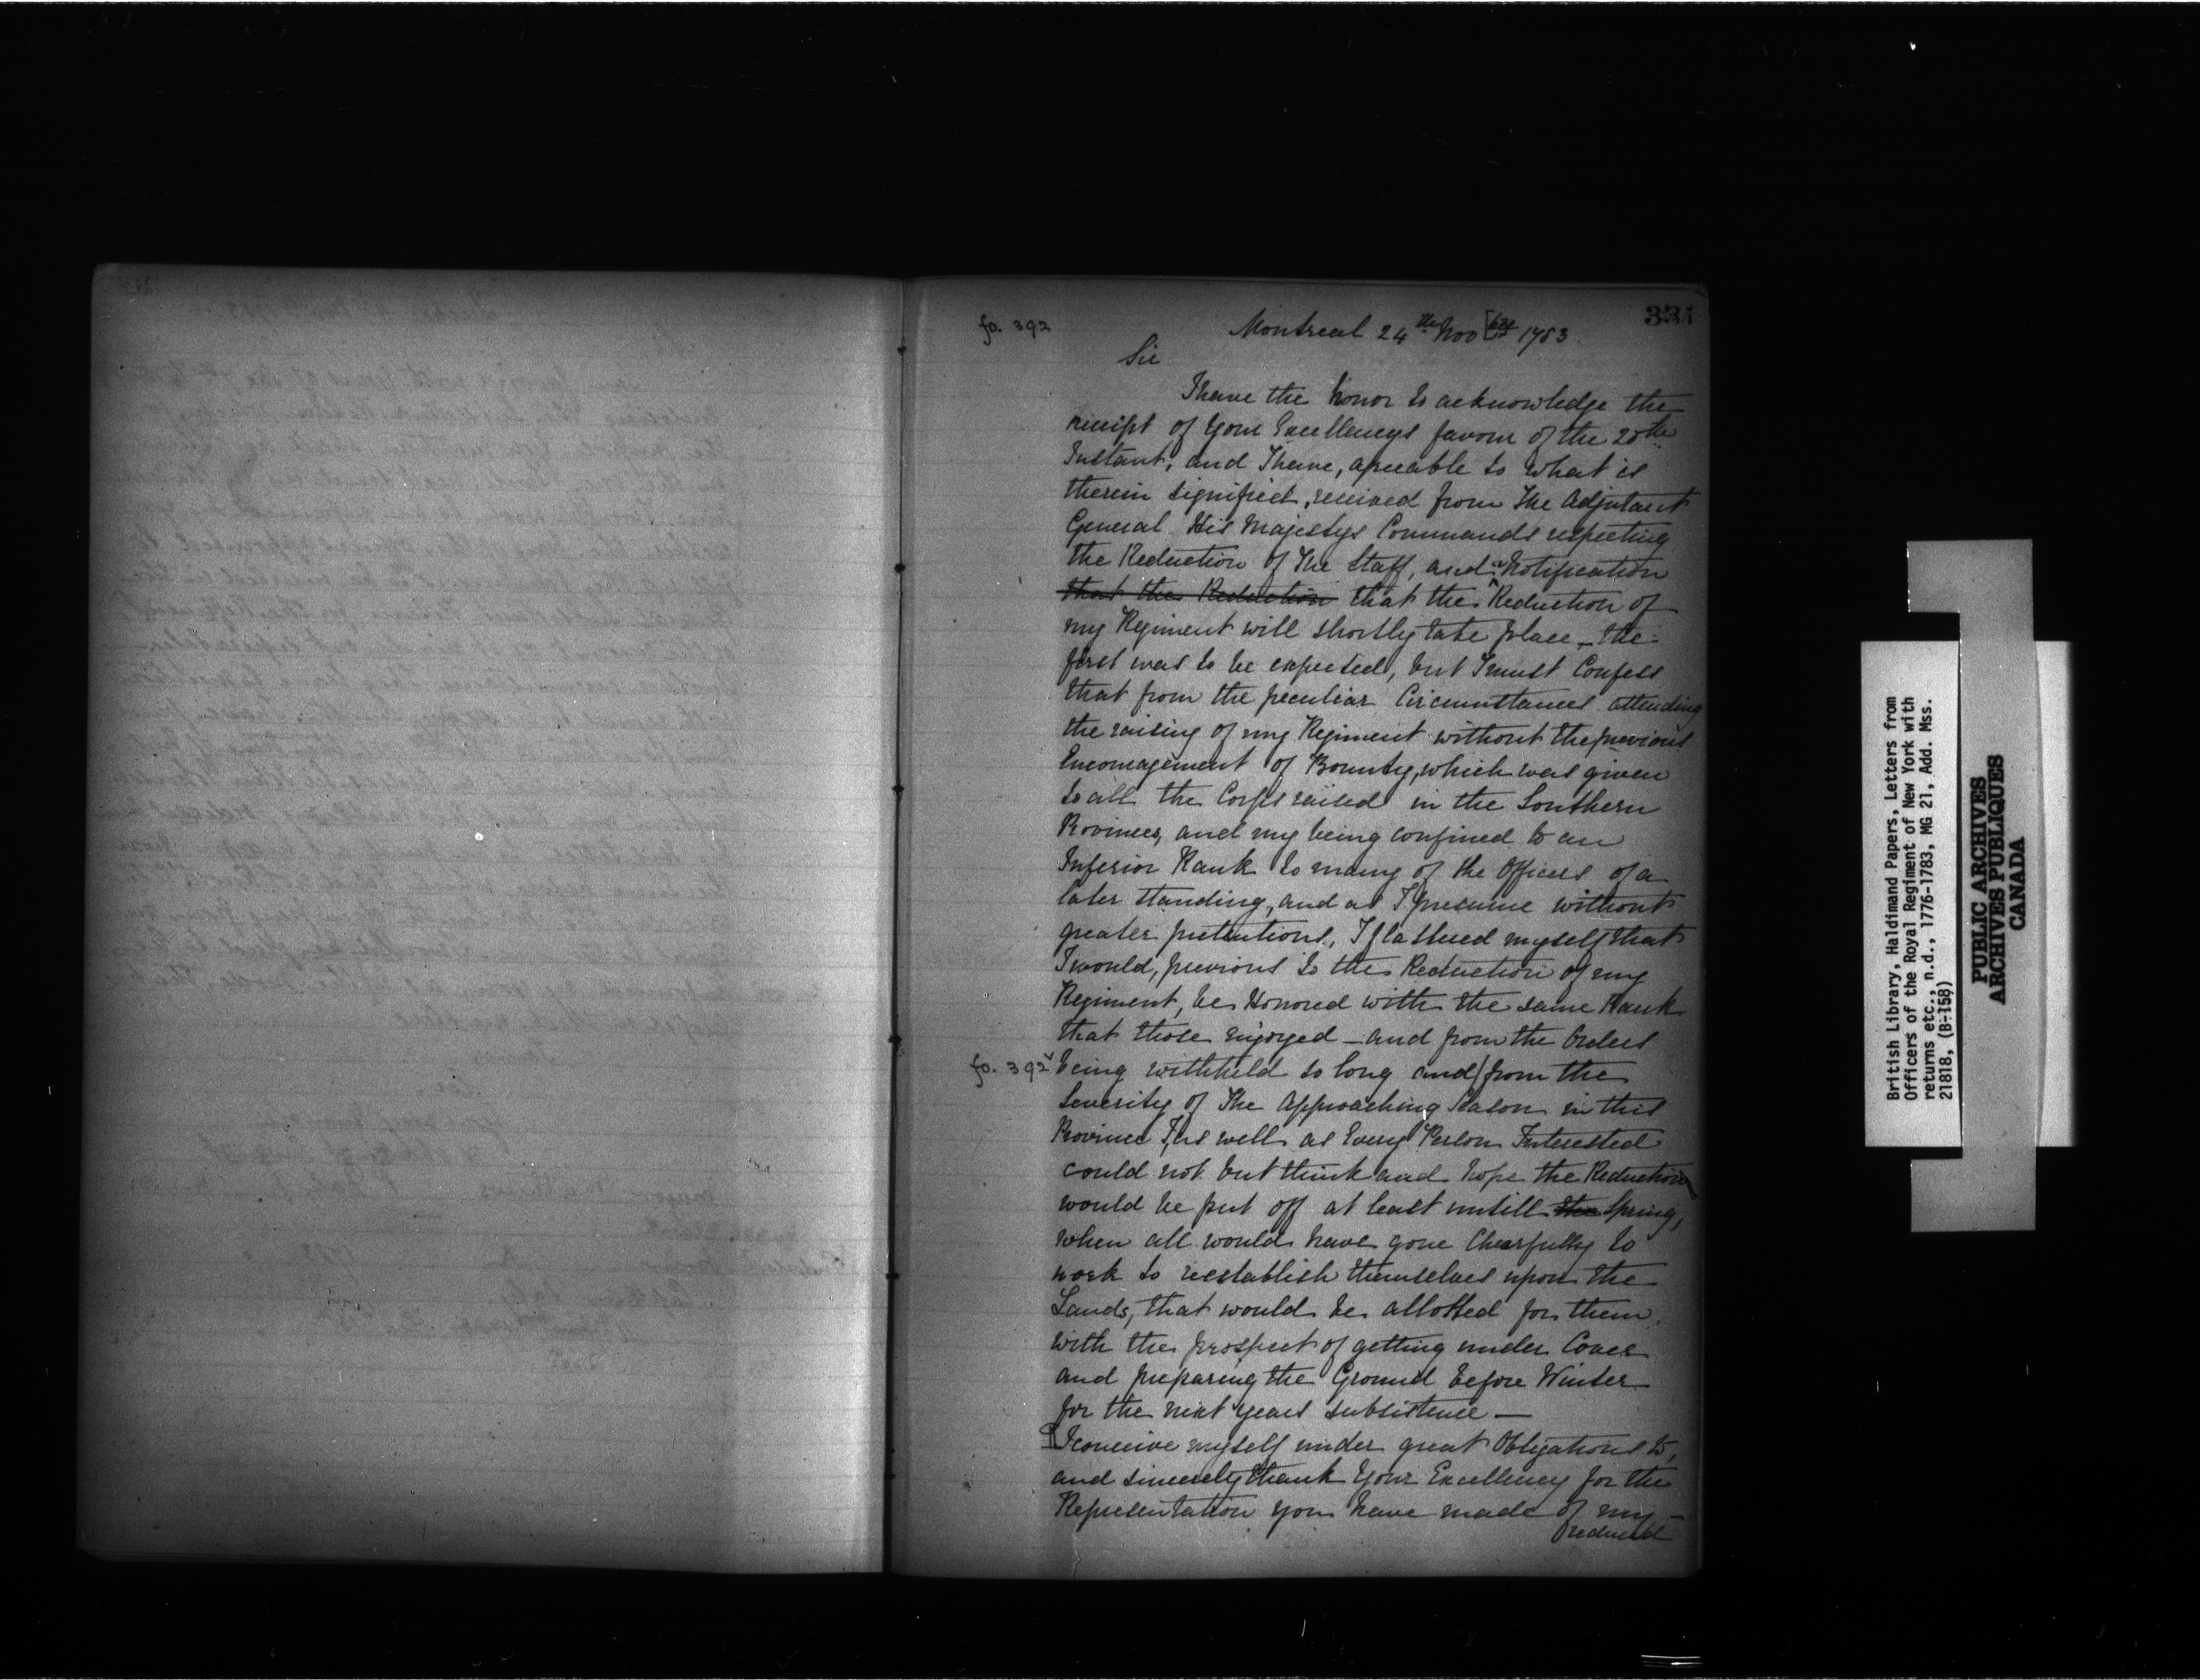 334
fo. 392
Montreal 24th Nov[ber 1783
Sir
I have the honor to acknowledge the
receipt of Your Excellencys favour of the 20th
Instant, and I have, agreeable to what is
therein signified, received from The Adjutant
General His Majestys Commands respecting
the Reduction of The Staff, and a Notification
that the Reduction that the Reduction of
my Regiment will shortly take place – the
first was to be expected, but I must Confess
that from the peculiar Circumstances attending
the raising of my Regiment without the previous
Encouragement of Bounty, which was given
to all the Corps raised in the Southern
Provinces, and my being confined to an
Inferior Rank to many of the Officers of a
later standing, and as I presume without
greater pretentions, I flattered myself that
I would, previous to the Reduction of my
Regiment, be Honored with the same Rank
that those enjoyed – and from the Orders
fo. 392v being withheld so long and/from the
Severity of The Approaching Season in this
Province I, as well as Every Person Interested
could not but think and hope the Reduction
would be put off at least untill the Spring,
when all would have gone Chearfully to
work to reestablish themselves upon the
Lands, that would be allotted for them
with the prospect of getting under Cover
and preparing the Ground before Winter
for the next years subsistence —
I conceive myself under great Obligations to,
and sincerely thank Your Excellency for the
Representation you have made of my
reduced
British Library, Haldimand Papers, Letters from
Officers of the Royal Regiment of New York with
returns etc., n.d., 1776-1783, MG 21, Add. Mss.
21818, (B-158)
PUBLIC ARCHIVES
ARCHIVES PUBLIQUES
CANADA